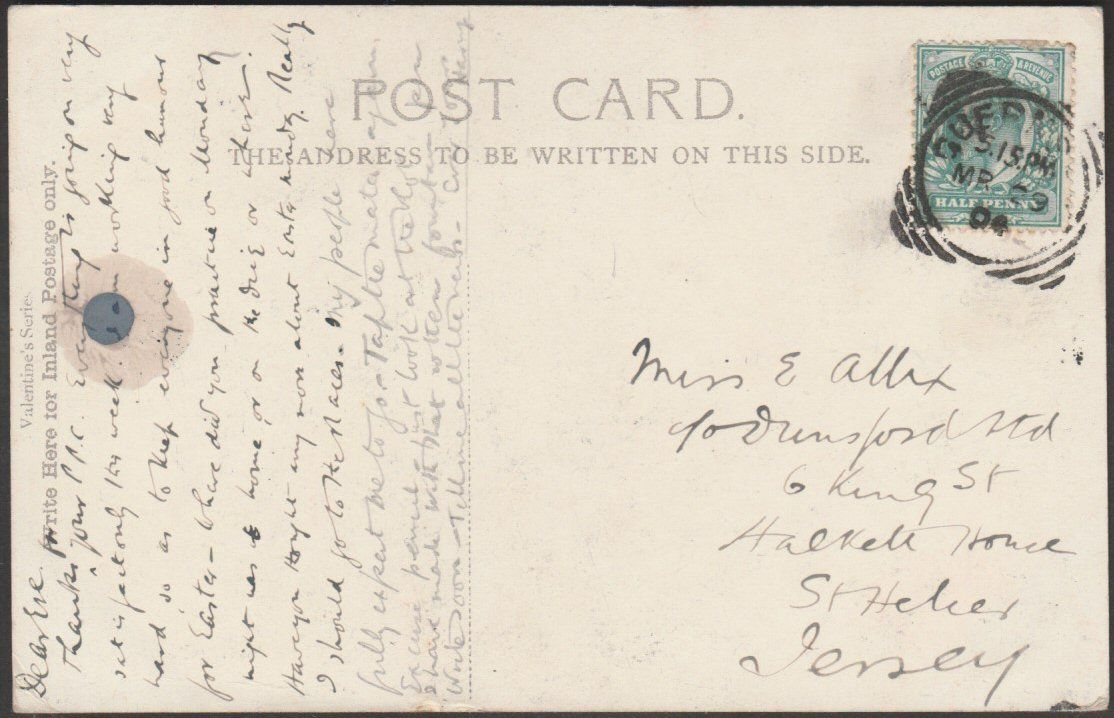 POST CARD.
THE ADDRESS TO BE WRITTEN ON THIS SIDE.
POSTAGE & REVENUE
HALF PENNY
GUER
5.15 PM
MR 29
04
Valentine's Series
Write Here for Inland Postage only.
Dear Eve
Thanks for your P.P.C. Everything is going on very
satisfactorily this week. I am working very
hard so as to keep everyone in good humour
for Easter - where did you practice on Monday
night was it home, or on the or where.
Have you thought any more about Easter Monday. Really
I should go to the Races - My people here
fully expect me to go. Tap the mater again.
Excuse pencil just look at the blots
I have made with that rotten fountain pen
Write soon - Tell me all the news -
Miss E Allix
c/o Dunsford Ltd
6 King St
Halkett House
St Helier
Jersey